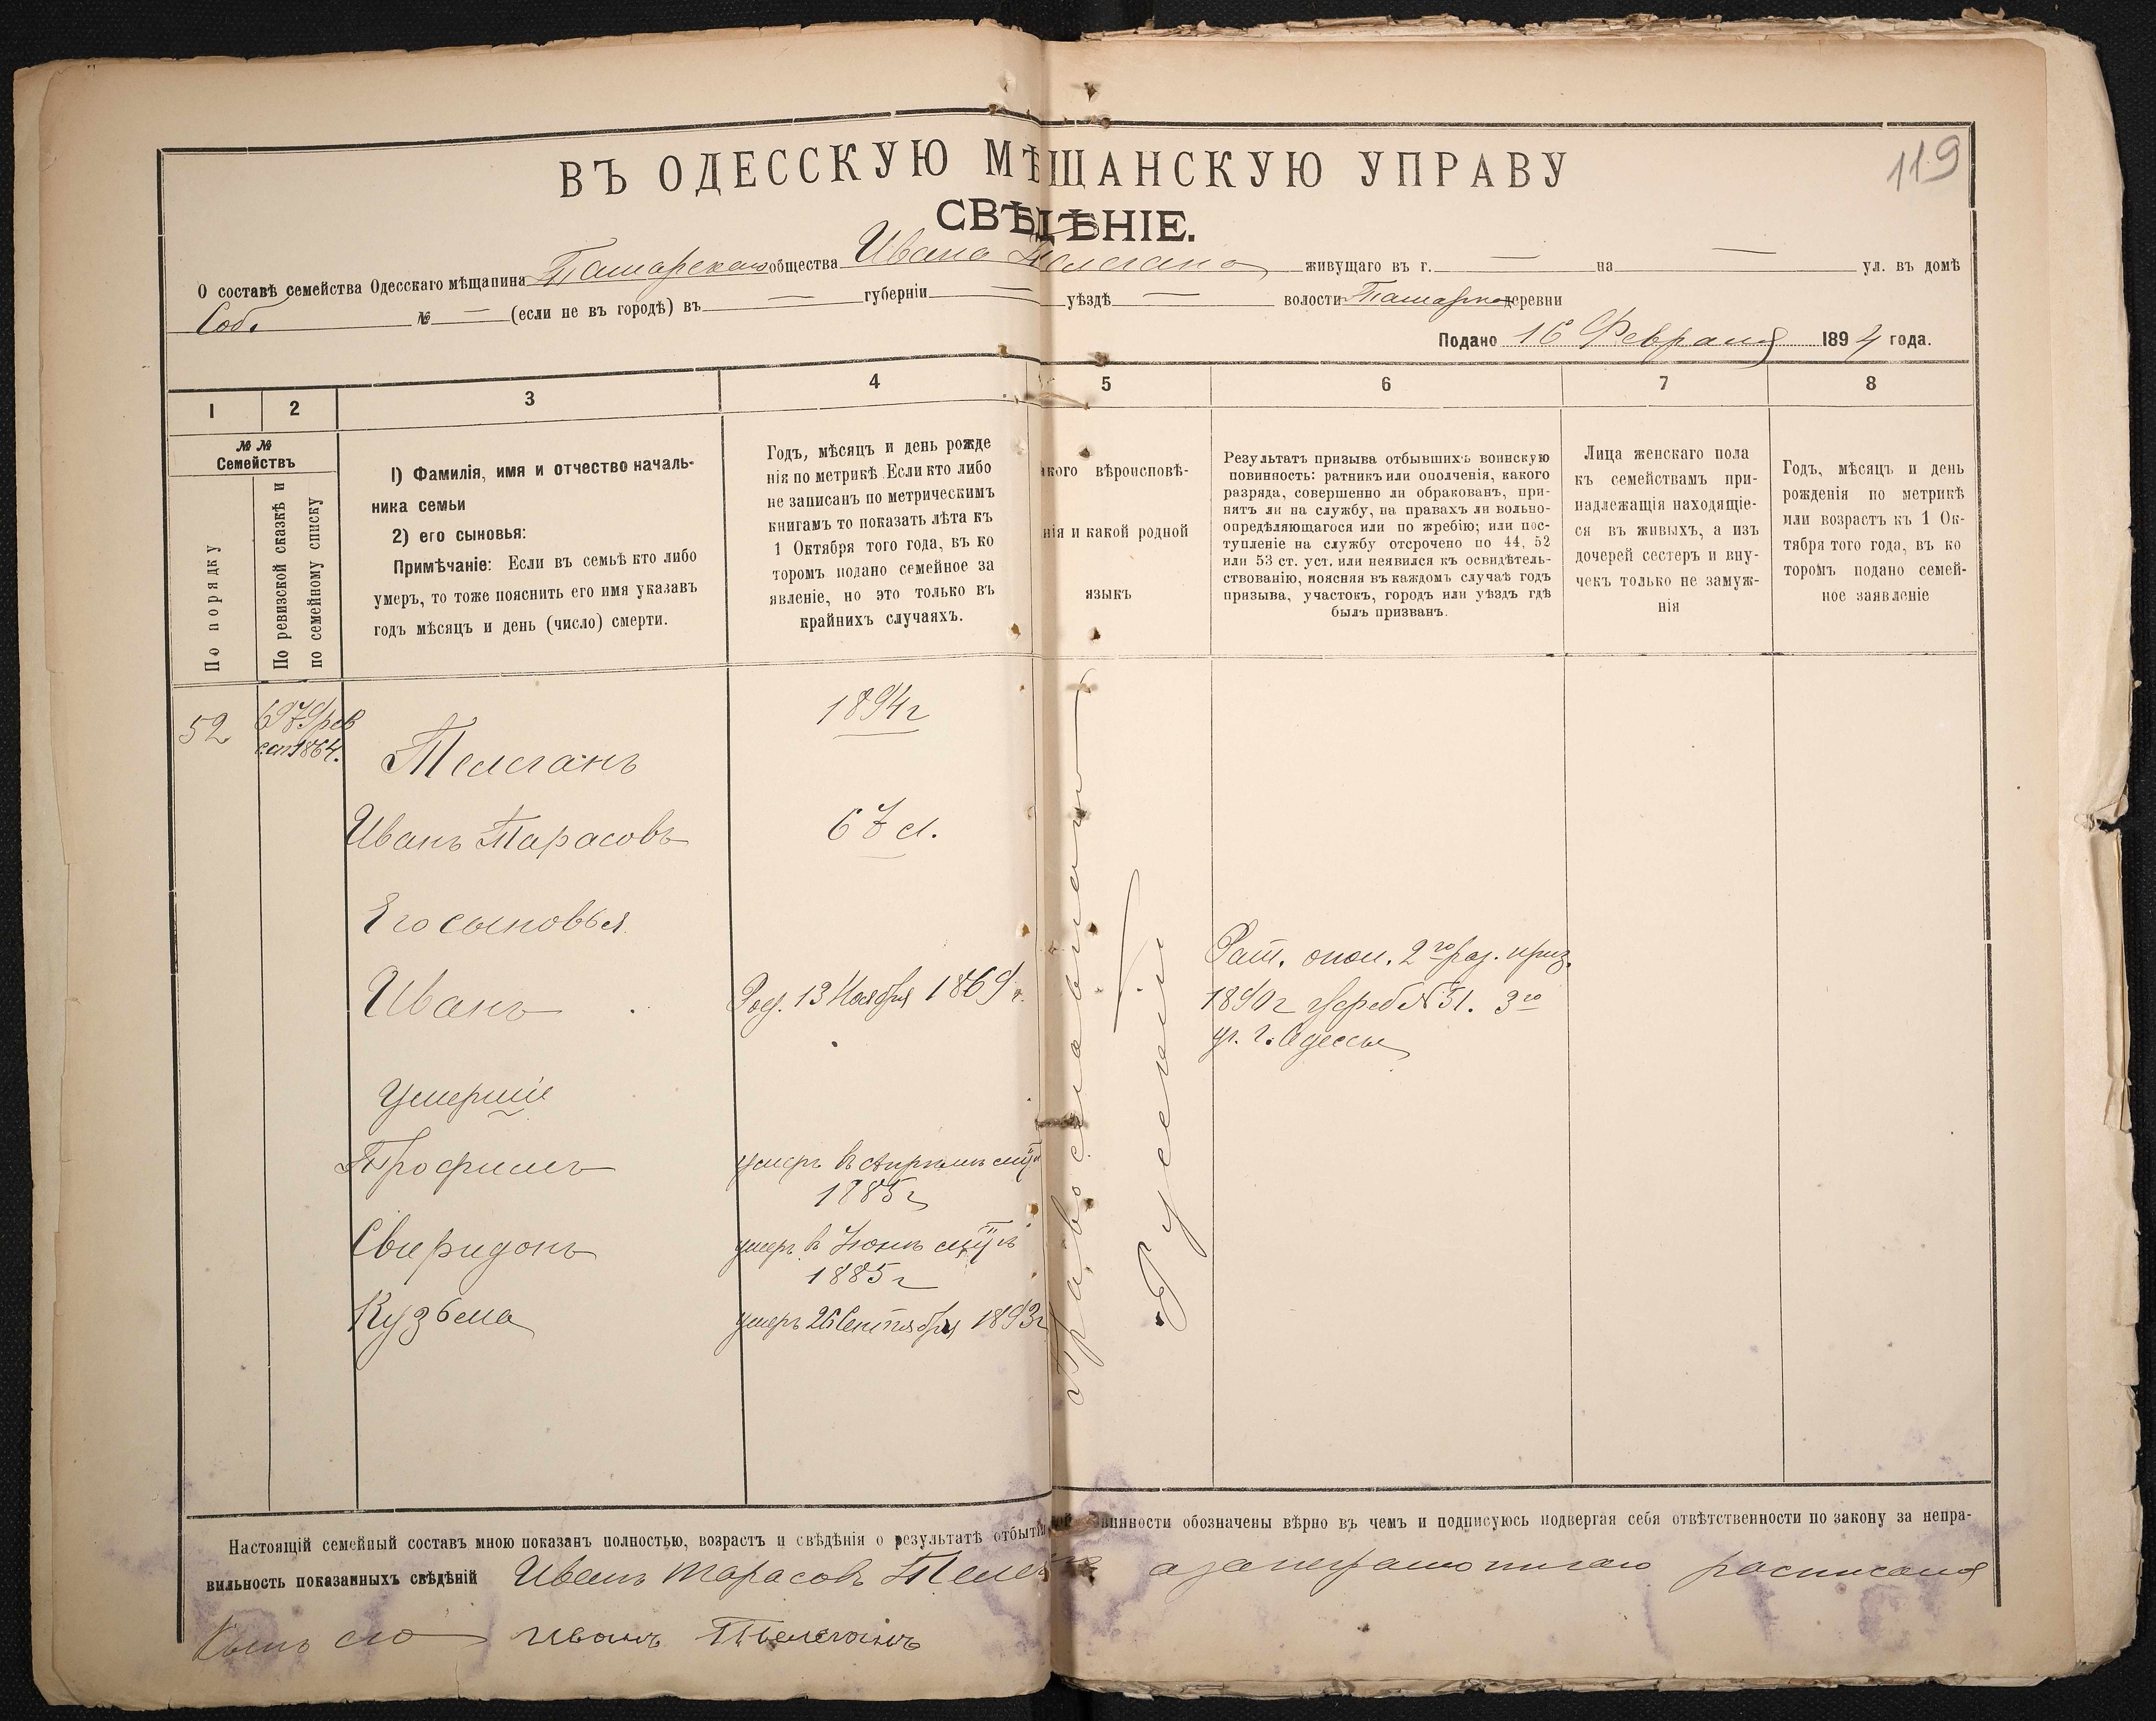 119
ВЪ ОДЕССКУЮ МѢЩАНСКУЮ УПРАВУ
СВѢДѢНІЕ.
О составѣ семейства Одесскаго мѣщанина Татарскаго общества Ивана Телегана живущаго въ г. — на — ул. въ домѣ
Соб. № — (если не въ городѣ) въ — губерніи — уѣздѣ — волости деревни
Подано 16 Февраля 1894 года.
1 2 3 4 5 6 7 8
№ №
Семействъ
По порядку
По ревизской сказкѣ и
по семейному списку
1) Фамилія, имя и отчество началь-
ника семьи
2) его сыновья:
Примѣчаніе: Если въ семьѣ кто либо
умеръ, то тоже пояснить его имя указавъ
годъ мѣсяцъ и день (число) смерти.
Годъ, мѣсяцъ и день рожде
нія по метрикѣ. Если кто либо
не записанъ по метрическимъ
книгамъ то показать лѣта къ
1 Октября того года, въ ко
торомъ подано семейное за
явленіе, но это только въ
крайнихъ случаяхъ.
акого вѣроисповѣ-
нія и какой родной
языкъ
Результатъ призыва отбывшихъ воинскую
повинность: ратникъ или ополченія, какого
разряда, совершенно ли обракованъ, при-
нятъ ли на службу, на правахъ ли вольно-
опредѣляющагося или по жребію; или пос-
тупленіе на службу отсрочено по 44, 52
или 53 ст. уст. или неявился къ освидѣтель-
ствованію, поясняя въ каждомъ случаѣ годъ
призыва, участокъ, городъ или уѣздъ гдѣ
былъ призванъ.
Лица женскаго пола
къ семействамъ при-
надлежащія находящіе-
ся въ живыхъ, а изъ
дочерей сестеръ и вну-
чекъ только не замуж-
нія
Годъ, мѣсяцъ и день
рожденія по метрикѣ
или возрастъ къ 1 Ок-
тября того года, въ ко
торомъ подано семей-
ное заявленіе
52
679 рев
1864.
1894 г
Телеганъ
Иванъ Тарасовъ
67 л.
Его сыновья
Иванъ
Род. 13 Ноября 1869 г.
Рат. опол. 2го раз. приз.
1890 г жреб № 51. 3го
уч. г. Одессы
Умершіе
Трофимъ
умеръ въ Апрѣлѣ м-цѣ
1885 г
Свиридонъ
умеръ в Іюнѣ м-цѣ
1885 г
Кузьма
умеръ 26 Сентября 1893 г
Православнаго
Русскій
Настоящій семейный составъ мною показанъ полностью, возрастъ и свѣдѣнія о результатѣ отбытія ой винности обозначены вѣрно въ чемъ и подписуюсь подвергая себя отвѣтственности по закону за непра-
вильность показанныхъ свѣдѣній Иванъ Тарасовъ Телеганъ а за неграмотнаго расписался
сынъ его Иванъ Телеганъ